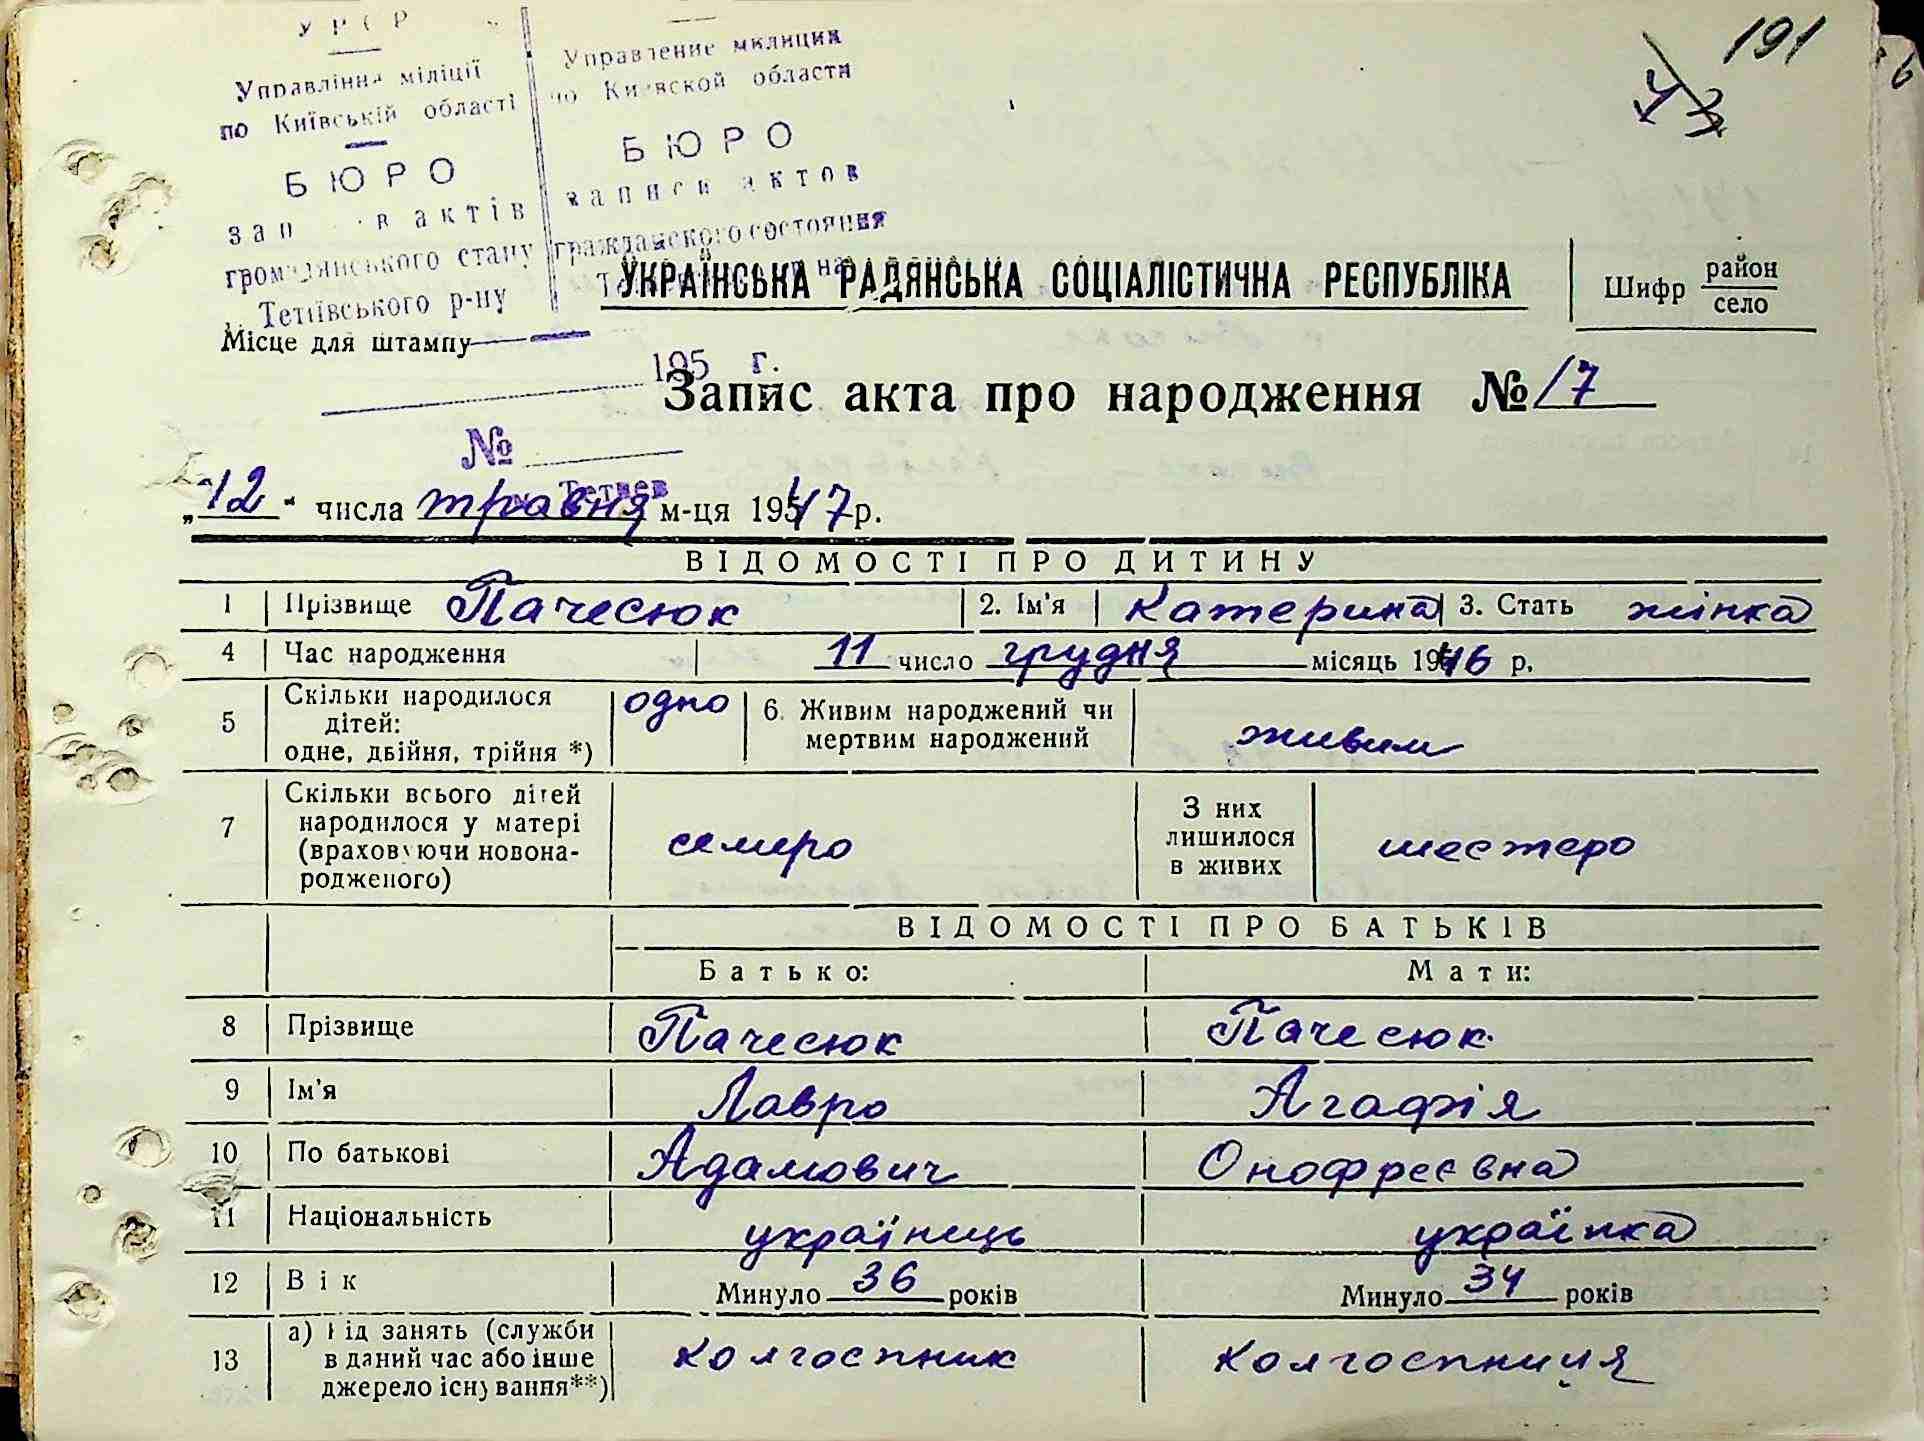 191
43
Управління міліції
по Київській області
БЮРО
актів
громадянського стану
Тетіївського р-ну
Управление милиции
по Киевской области
БЮРО
записи актов
гражданского состояния
УКРАЇНСЬКА РАДЯНСЬКА СОЦІАЛІСТИЧНА РЕСПУБЛІКА
Шифр район
село
Місце для штампу
195 г.
Запис акта про народження № 17
№
Тетиев
„12“ числа травня м-ця 1947 р.
ВІДОМОСТІ ПРО ДИТИНУ
1 Прізвище Пачесюк 2. Ім'я Катерина 3. Стать жінка
4 Час народження 11 число грудня місяць 1946 р.
5 Скільки народилося дітей: одне, двійня, трійня *) одно 6. Живим народжений чи мертвим народжений живим
7 Скільки всього дітей народилося у матері (враховуючи новонародженого) семеро З них лишилося в живих шестеро
ВІДОМОСТІ ПРО БАТЬКІВ
Батько: Мати:
8 Прізвище Пачесюк Пачесюк
9 Ім'я Лавро Агафія
10 По батькові Адамович Онофреєвна
11 Національність українець українка
12 Вік Минуло 36 років Минуло 34 років
13 а) Рід занять (служби в даний час або інше джерело існування**) колгоспник колгоспниця